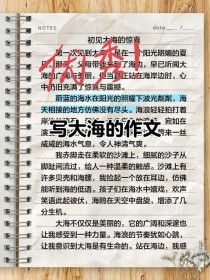 NOTES
date
初见大海的惊喜
第一次见到大海是在一个阳光明媚的夏
海的广阔与美丽，但当真正站在海岸边时，心
中仍旧充满了惊喜与震撼。
蔚蓝的海水在阳光的照耀下波光粼粼，海
天相接的地方仿佛没有尽头。海浪轻轻拍打着
写大海的作文
咸咸的海水气息，令人神清气爽。
我赤脚走在柔软的沙滩上，细腻的沙子从
脚趾间流过，给人一种温柔的触感。沙滩上有
许多贝壳和海螺，我捡起一个放在耳边，仿佛
能听到海的低语。孩子们在海水中嬉戏，欢声
笑语此起彼伏，海鸥在天空中盘旋，增添了几
分生机。
大海不仅仅是美丽的，它的广阔和深邃也
让我感受到一种力量。海浪的节奏犹如心跳，
让我意识到大海是有生命的。站在海边，我感